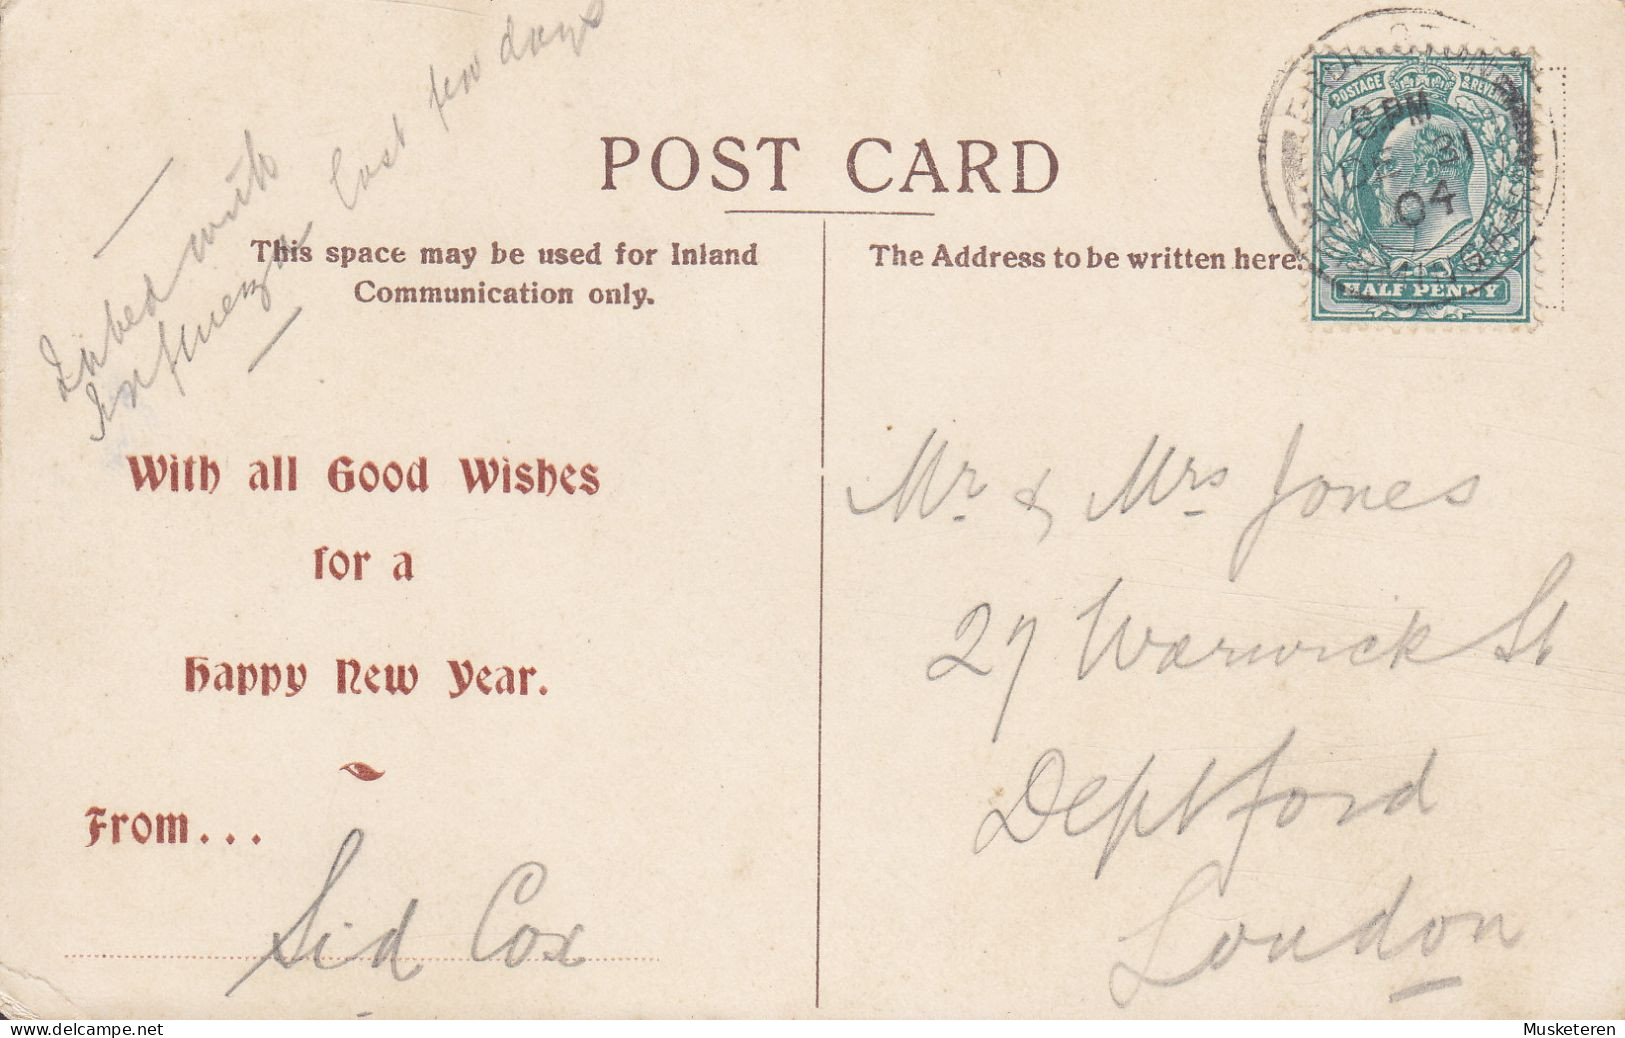 In bed with
Influenza last few days
POST CARD
This space may be used for Inland
Communication only.
The Address to be written here.
POSTAGE & REVENUE
8.PM
DE 31
04
HALF PENNY
With all Good Wishes
for a
Happy New Year.
From...
Sid Cox
Mr & Mrs Jones
27 Warwick St
Deptford
London
Musketeren